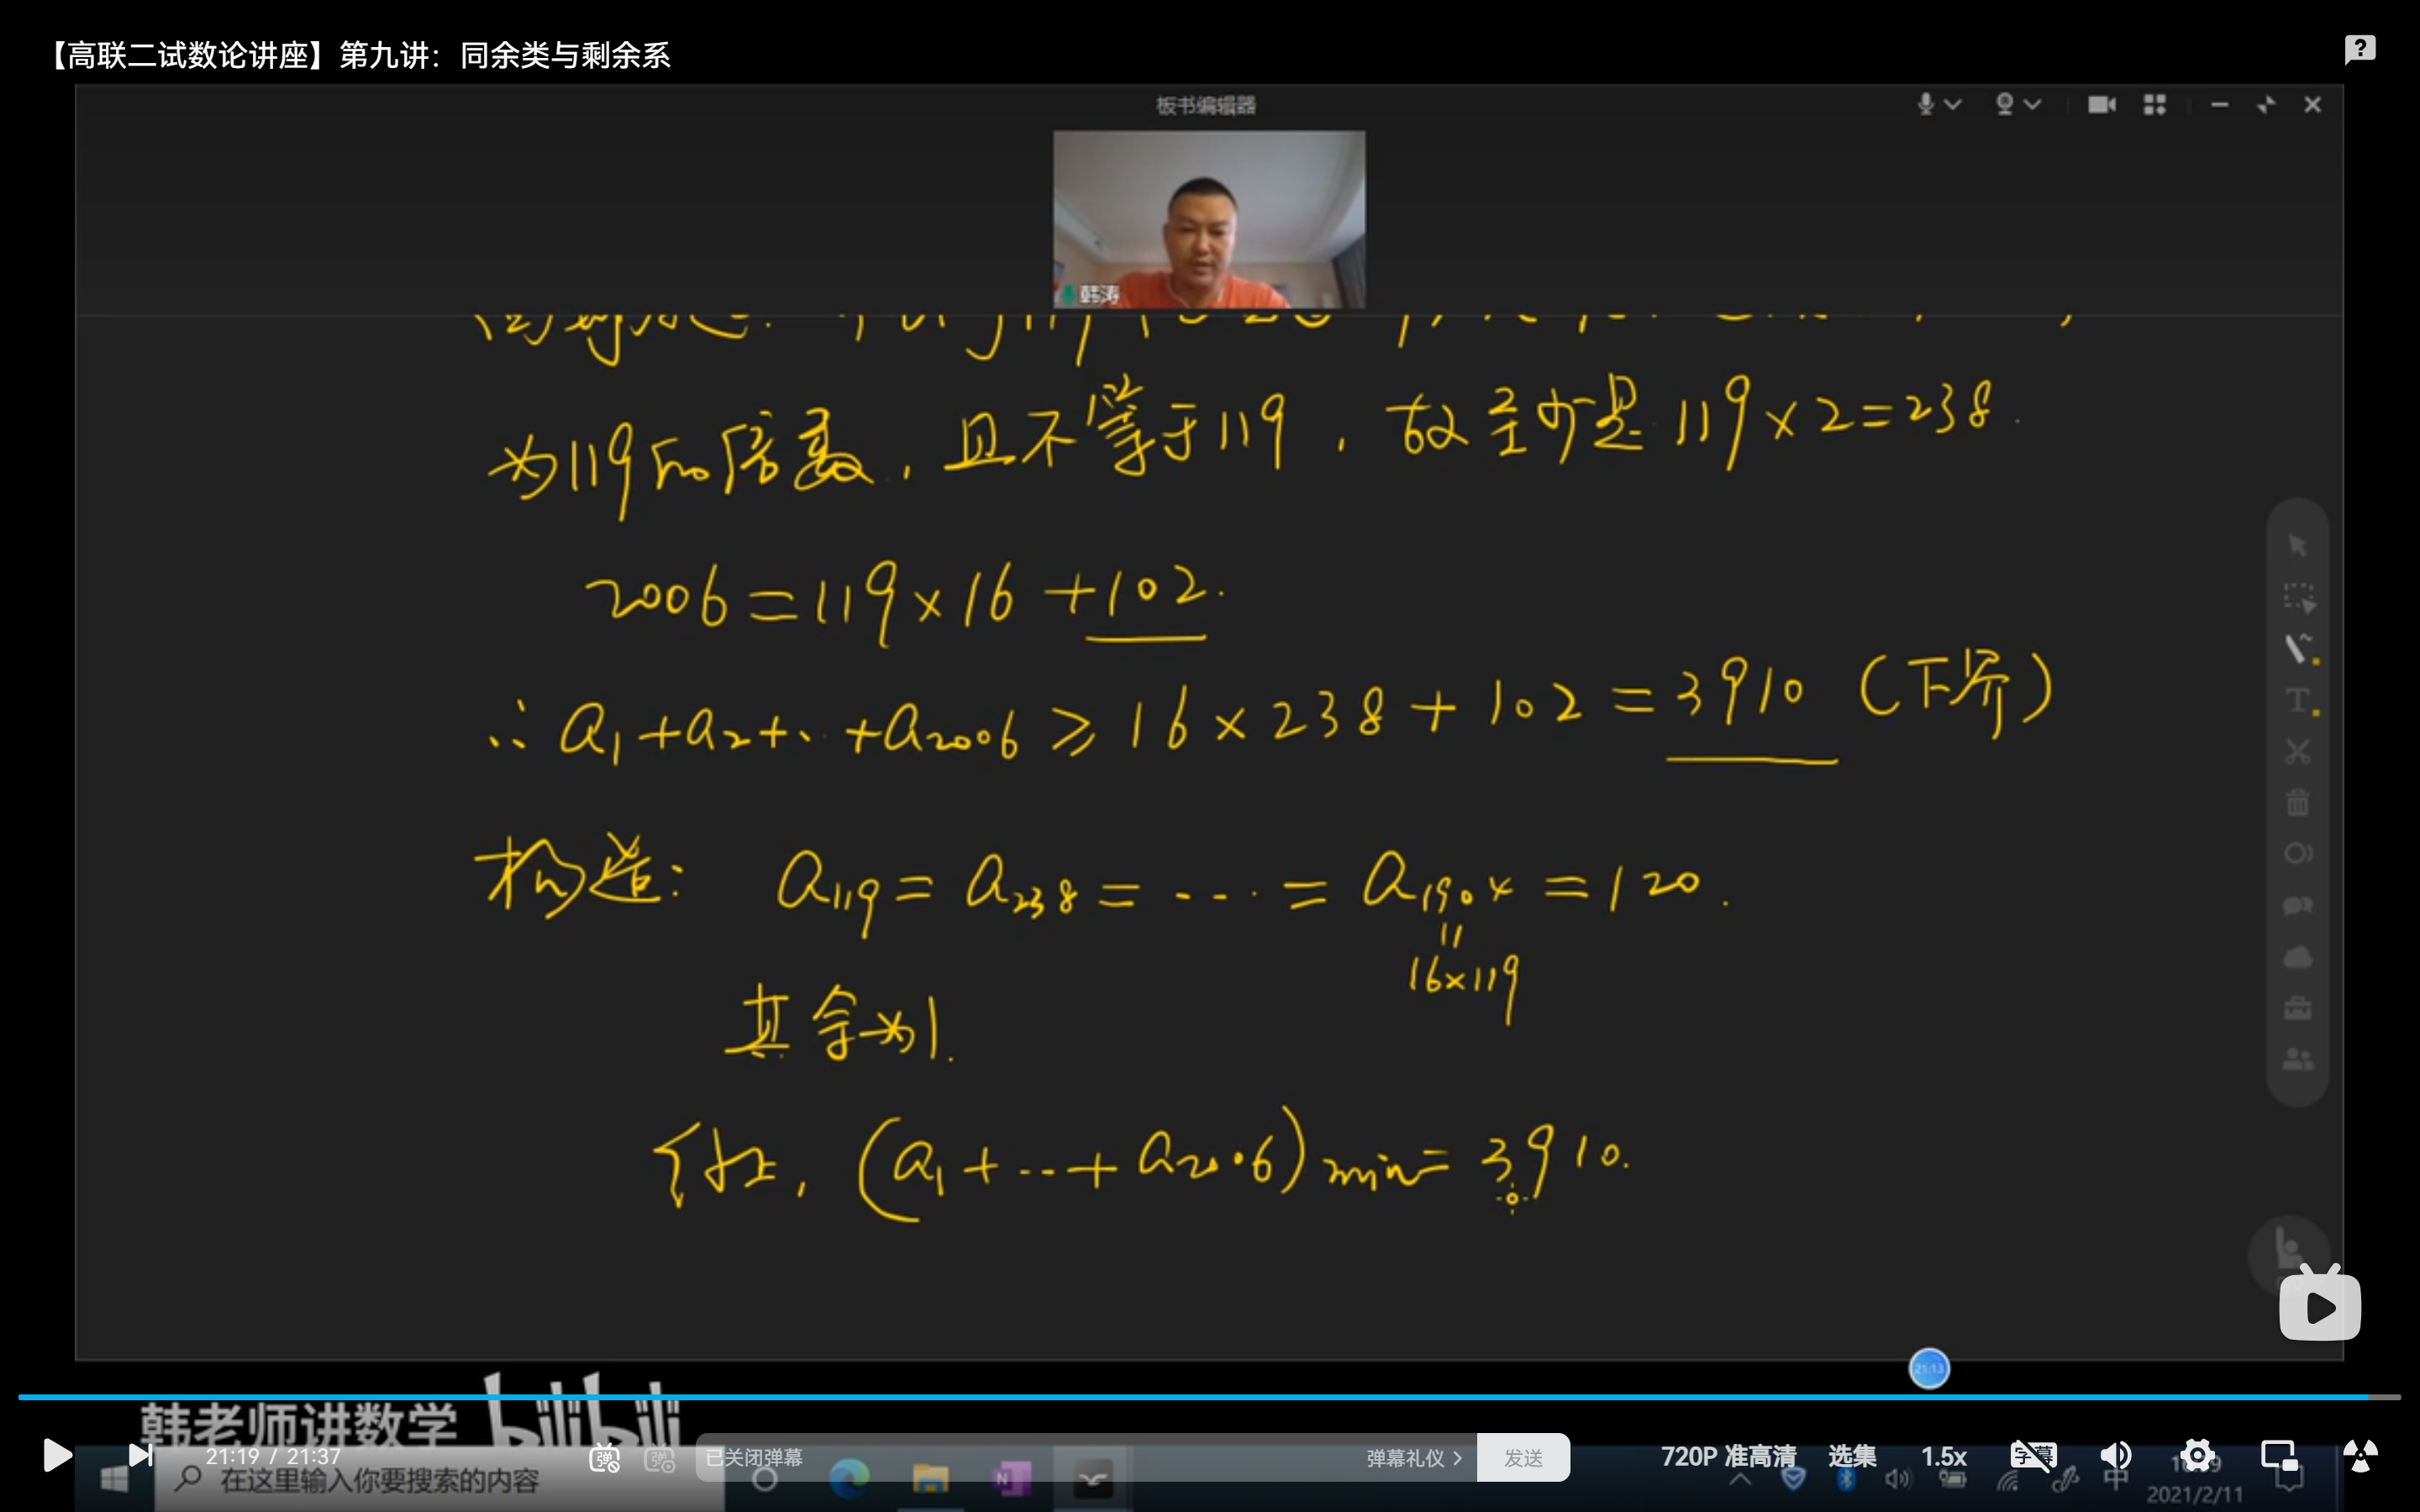 【高联二试数论讲座】第九讲：同余类与剩余系
板书编辑器
韩涛
为119的倍数，且不等于119，故至少是119×2=238.
2006=119×16+102.
∴ a₁+a₂+⋯+a₂₀₀₆ ≥ 16×238+102=3910（下界）
构造： a₁₁₉=a₂₃₈=⋯=a₁₉₀₄=120.
=
16×119
其余为1.
(a₁+⋯+a₂₀₀₆)min=3910.
21:13
韩老师讲数学 bilibili
21:19 / 21:37
弹
弹
已关闭弹幕
弹幕礼仪 >
发送
720P 准高清
选集
1.5x
字幕
在这里输入你要搜索的内容
N
中
2021/2/11